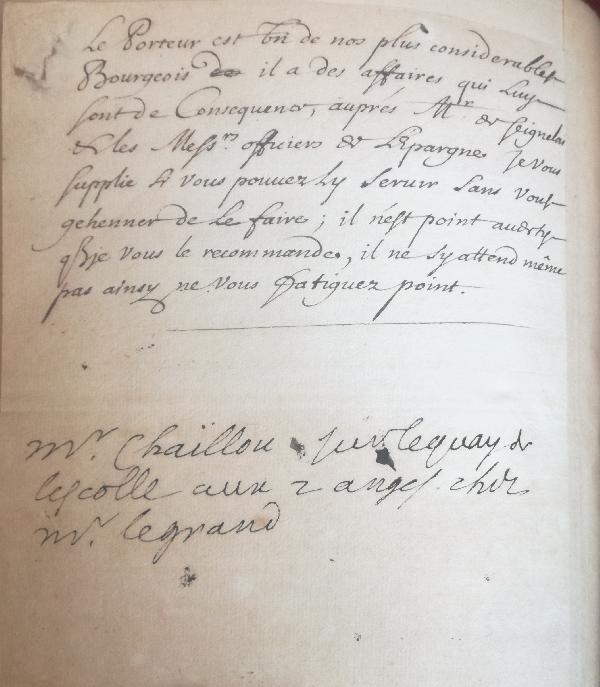 Le Porteur est Un de nos plus considerables
Bourgeois il a des affaires qui Luy
sont de Consequence, auprés Mr de seignelay
& les Messrs officiers de L'Epargne, Je vous
supplie si vous pouvez Ly servir sans vous
gehenner de Le faire; il n'est point averty
que je vous le recommande, il ne sy attend même
pas ainsy ne vous fatiguez point.
mr. Chaillou sur le quay de
lescolle aux 2 anges chez
mr. legrand